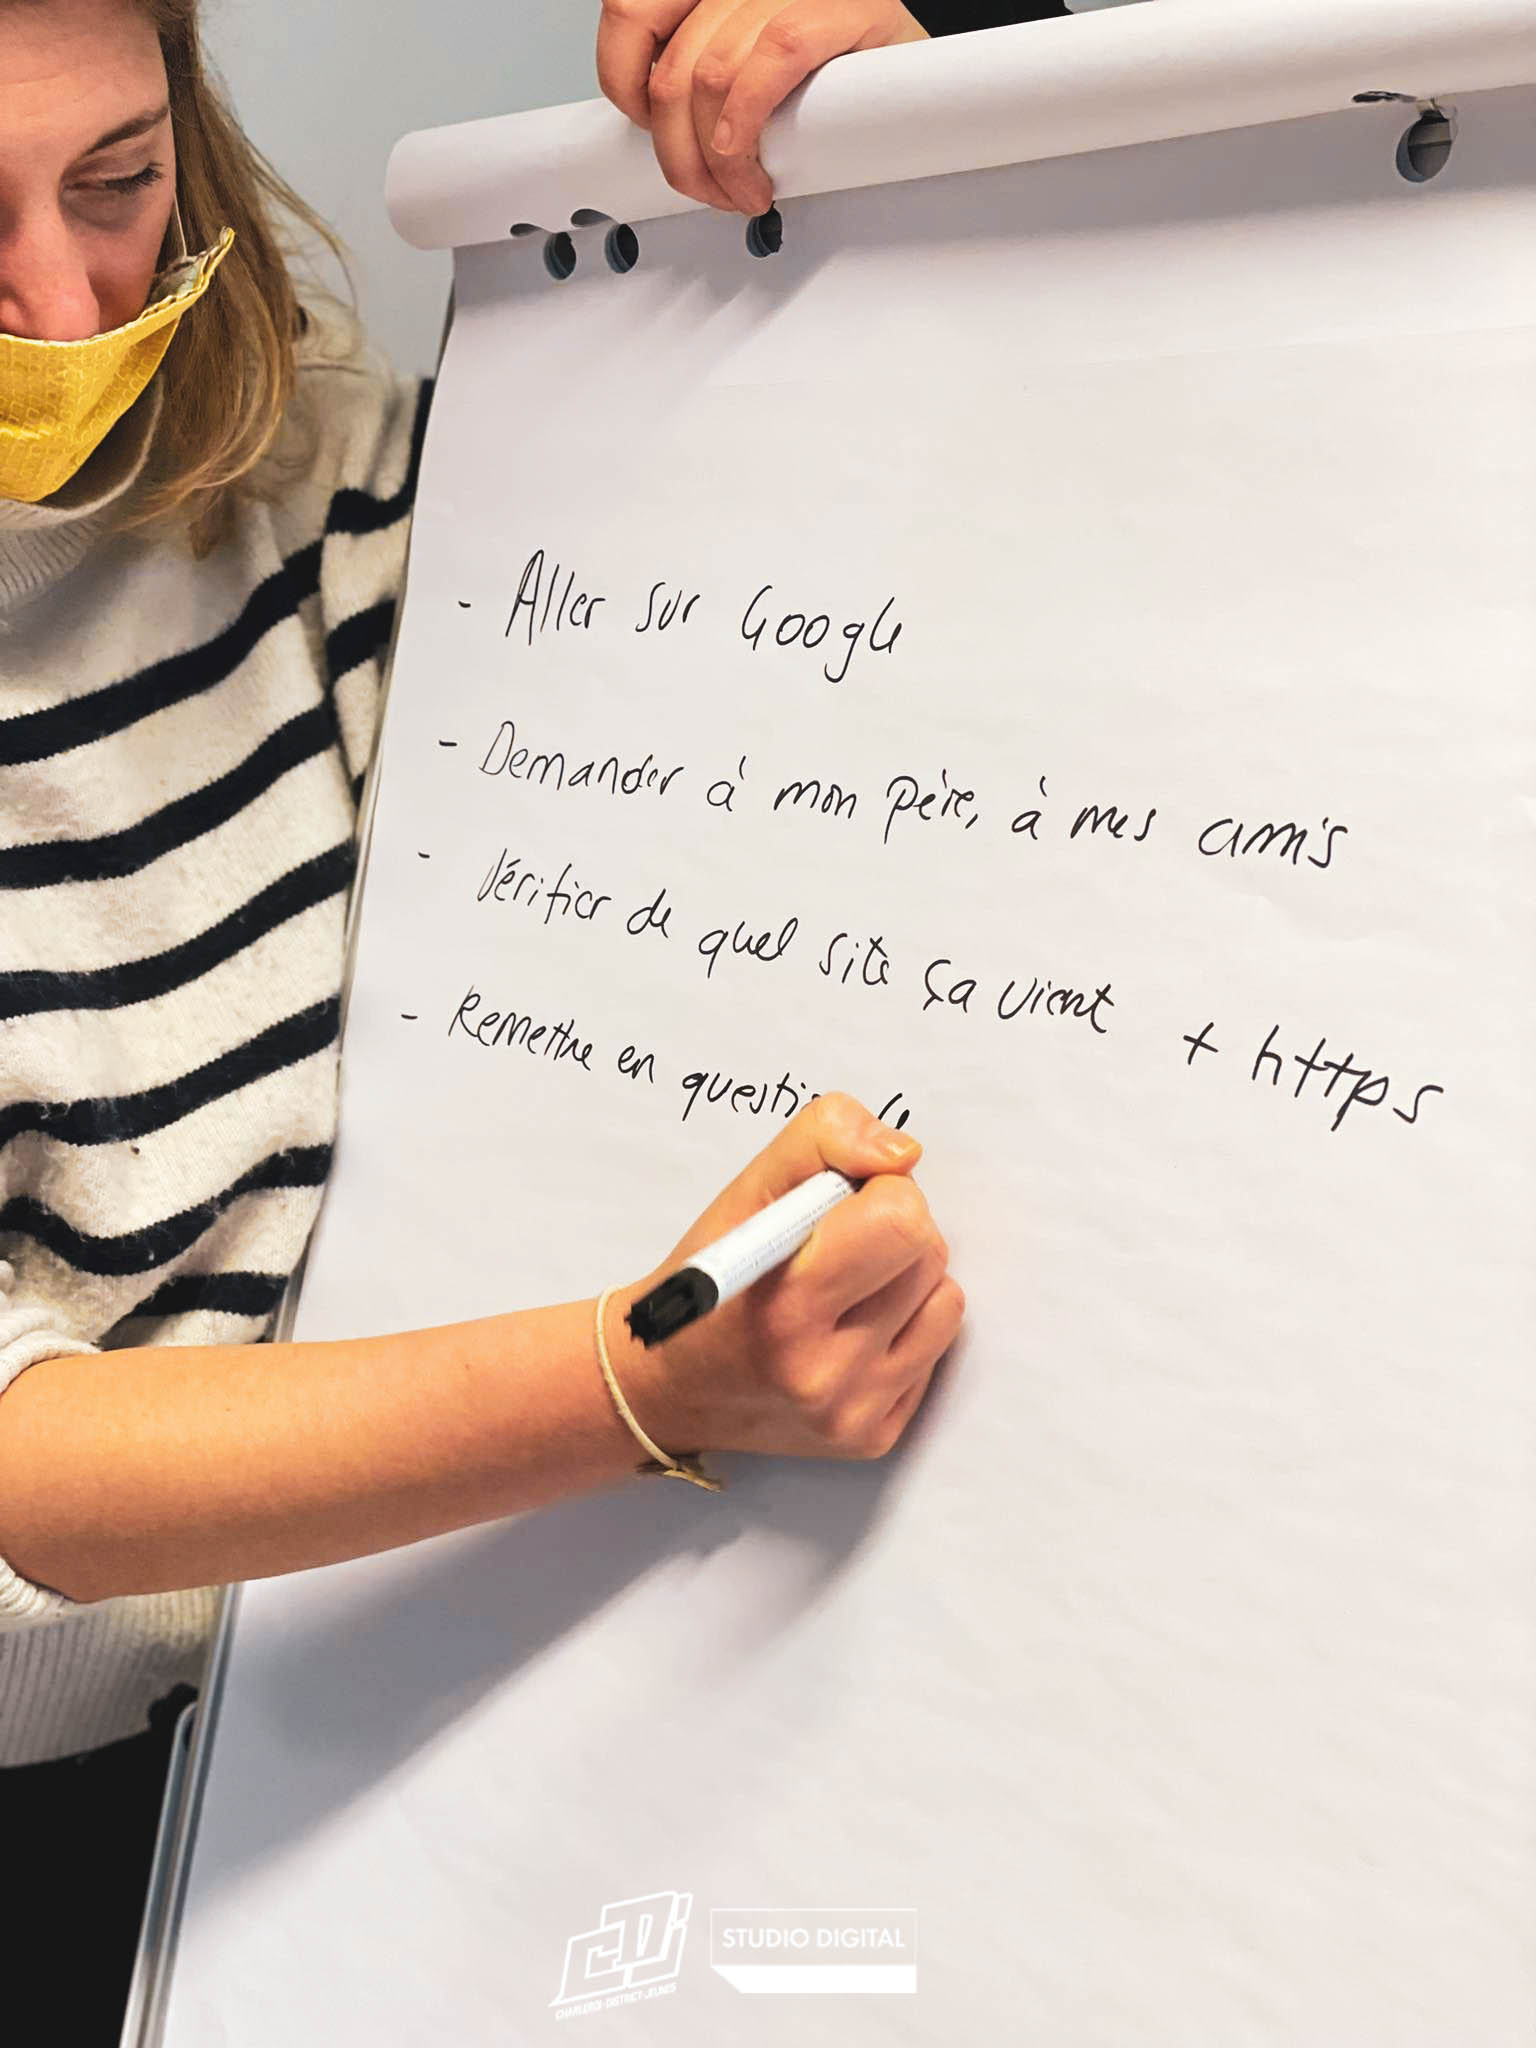 - Aller sur Google
- Demander à mon père, à mes amis
- Vérifier de quel site ça vient + https
- Remettre en question
CDJ
CHARLEROI-DISTRICT-JEUNES
STUDIO DIGITAL